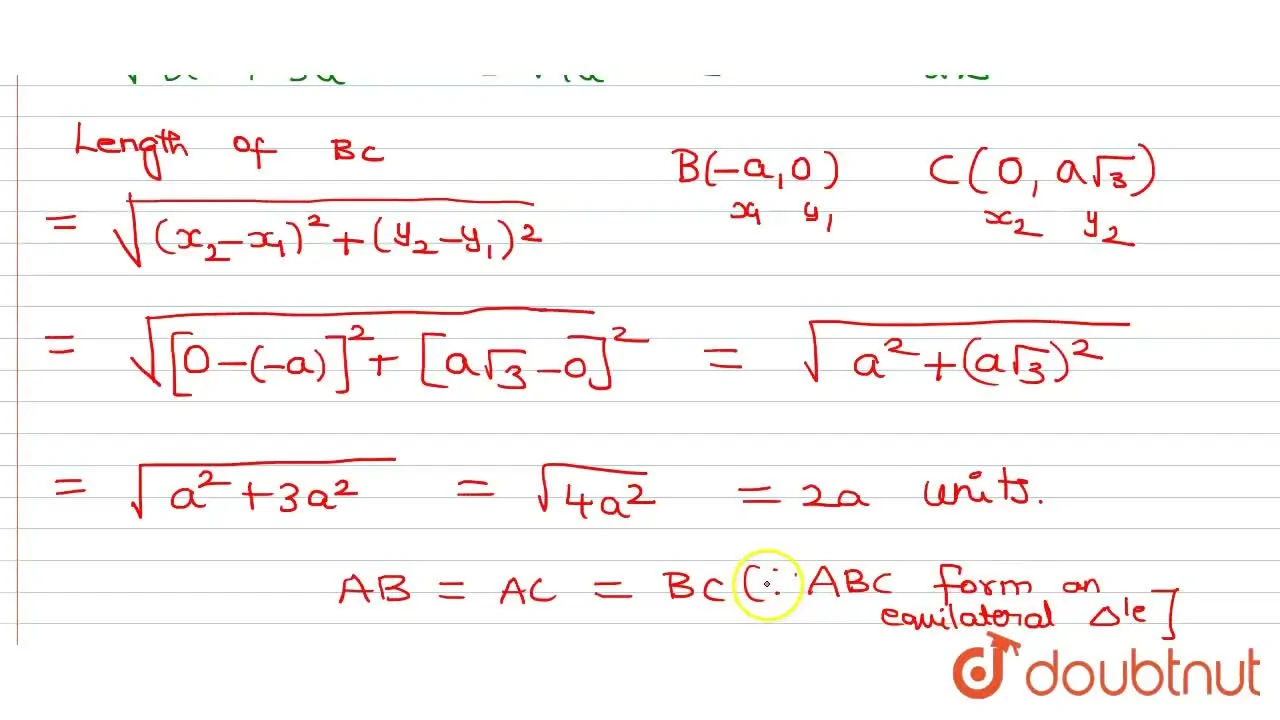 Length of BC B(-a,0) C(0, a√3)
x₁ y₁ x₂ y₂
= √(x₂-x₁)²+(y₂-y₁)²
= √[0-(-a)]²+[a√3-0]² = √a²+(a√3)²
= √a²+3a² = √4a² = 2a units.
AB = AC = BC (∵ ABC form an
equilateral Δ'le]
doubtnut